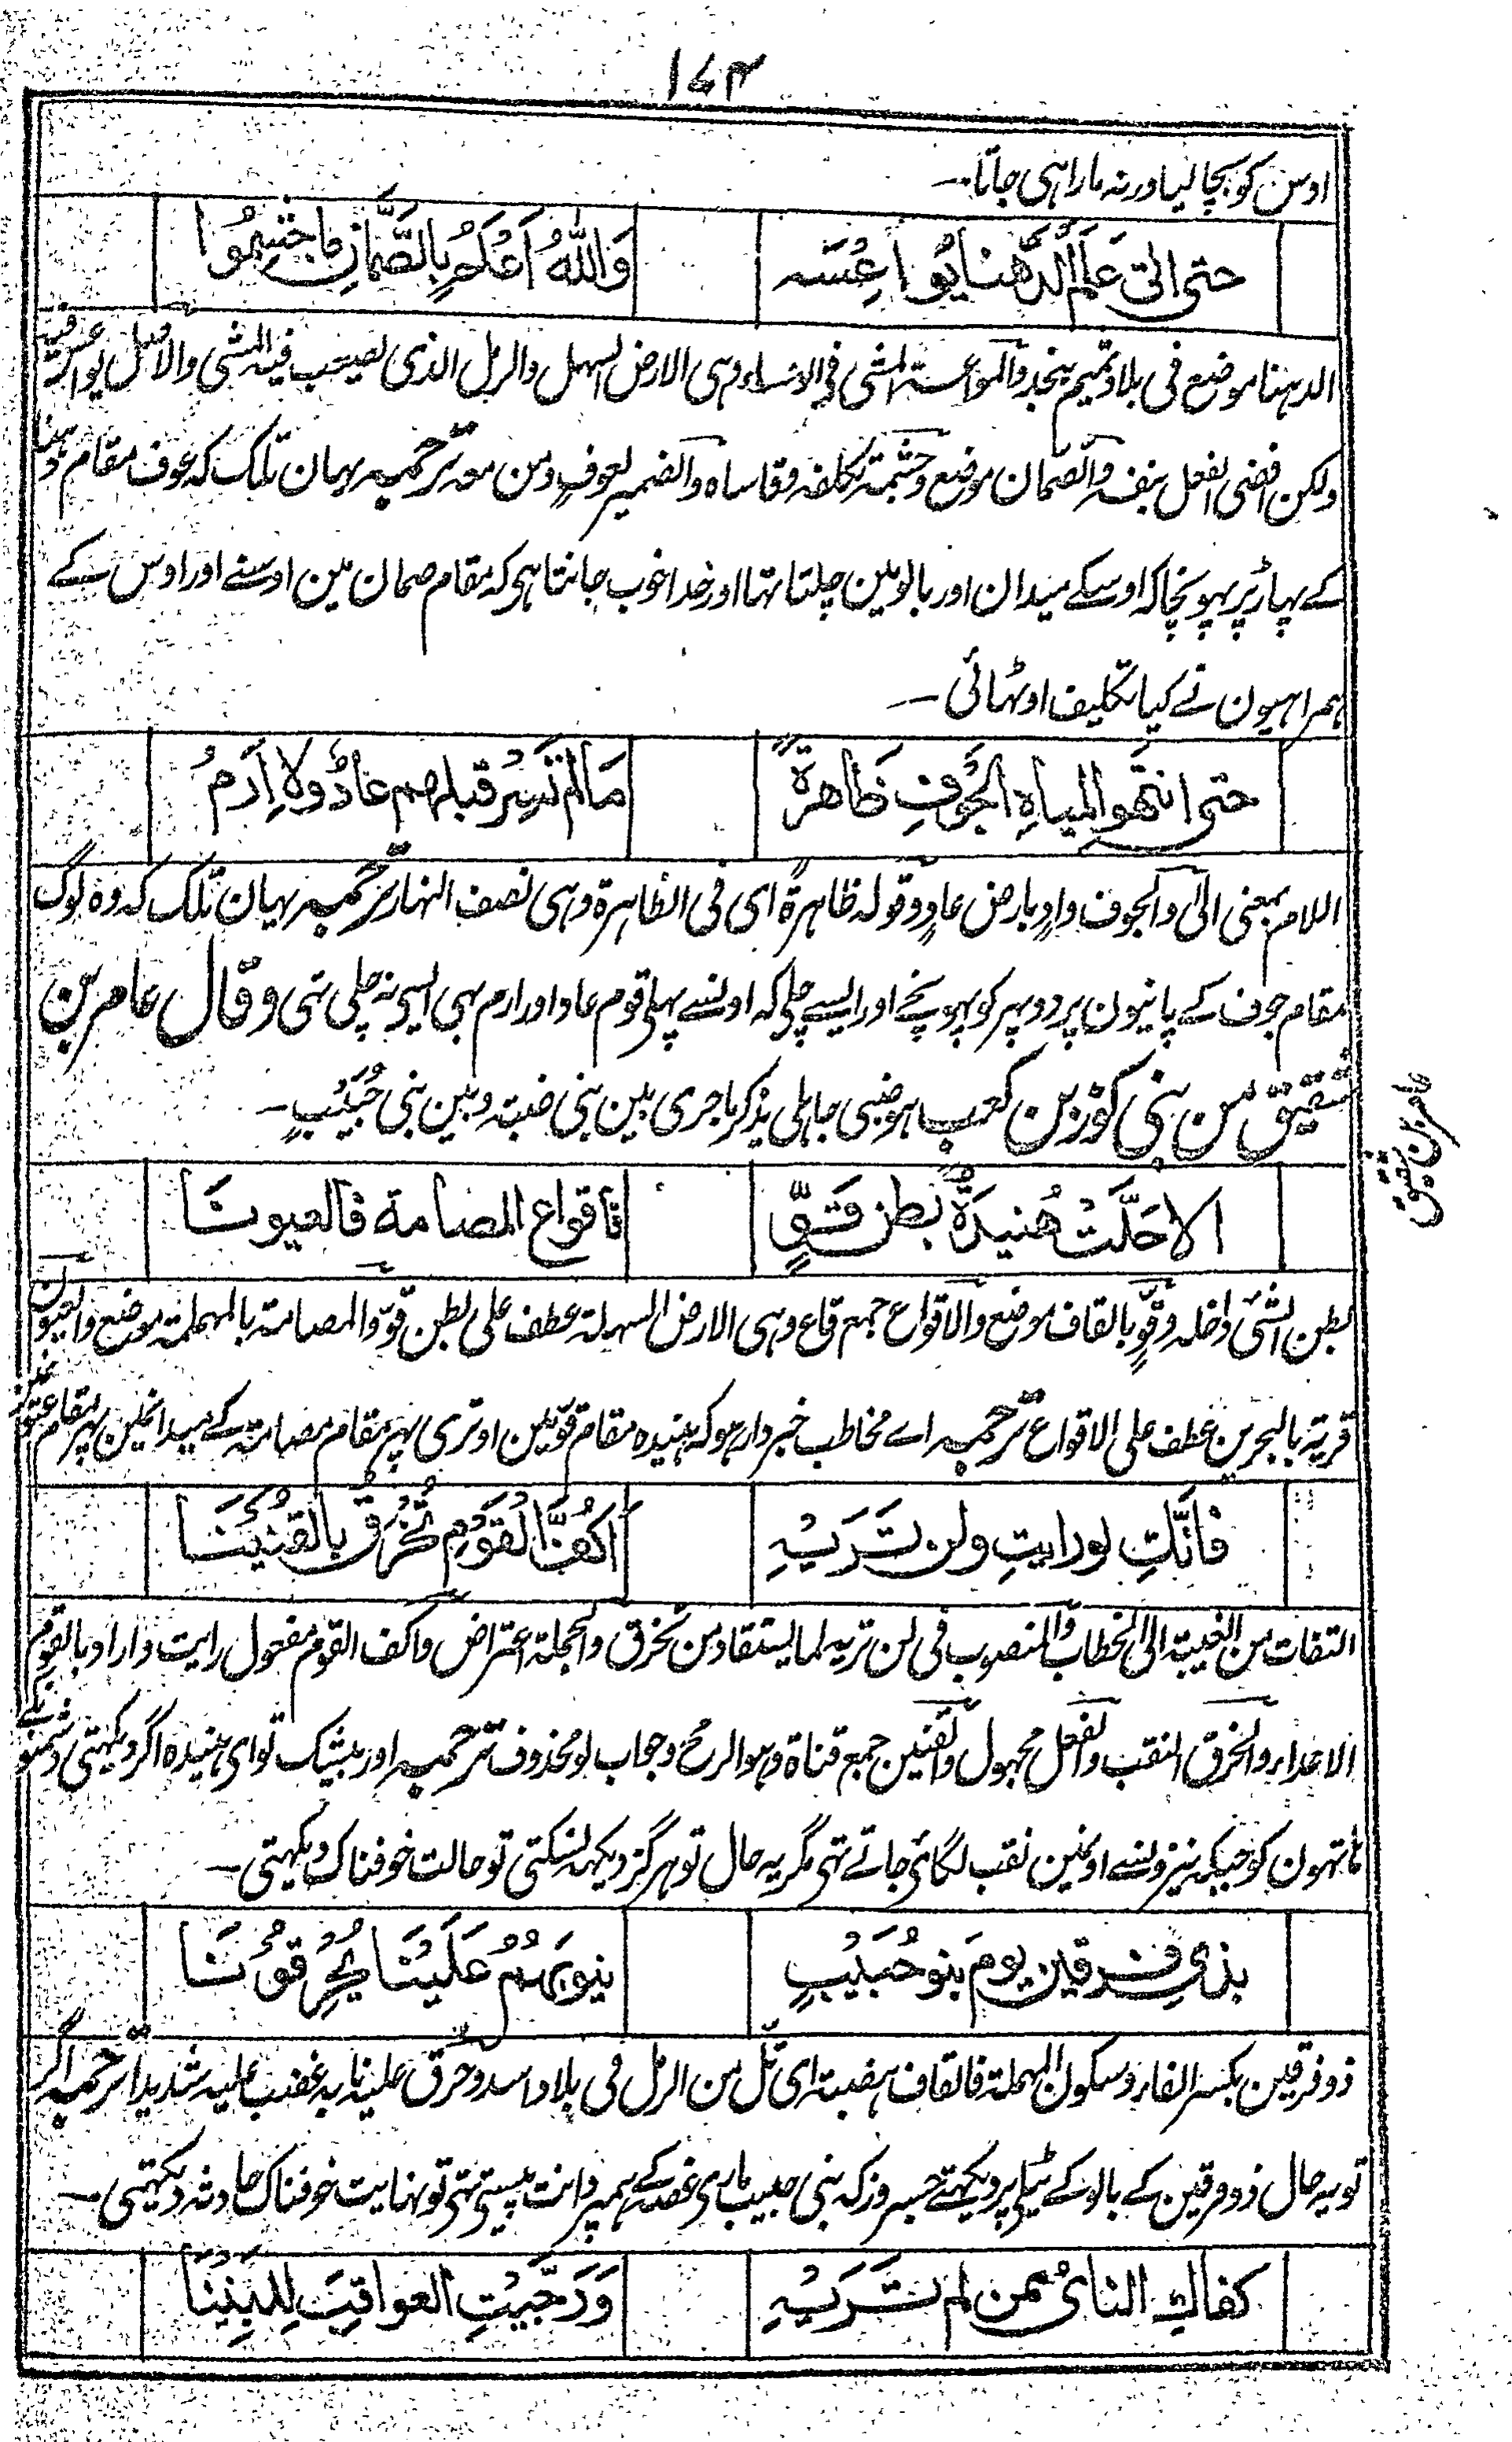 ۱۷۴
اوس کو بچا لیا ورنہ مارا ہی جاتا۔
حتی اتی عَلَمَ الدَّهنا یُواعِسُه وَاللّٰهُ اَعْلَمُ بِالصَّمَّانِ ما جَشِمُوا
الدہنا موضع فی بلاد تمیم بنجد والمواعسۃ المشی فی الاوعساء وہی الارض السہل والرمل الذی یصعب فیہ المشی والاصل یواعس فیہ
ولکن افضی الفعل بنفسہ والصمان موضع وجشمہ تکلفہ وقاساہ والضمیر لعوف ومن معہ ترجمہ یہان تلک کہ عوف مقام دہنا
کے پہاڑ پر پہونچا کہ اوسکے میدان اور بالو مین چلتا تہا اور خدا خوب جانتا ہی کہ مقام صمان مین اوسنے اور اوس کے
ہمراہیون نے کیا تکلیف اوٹہائی۔
حتی انتَهَوا لمیاهِ الجَوْفِ ظاهرةً مَا لم تَسِرْ قبلهم عادٌ ولا اِرَمُ
اللام بمعنی الی والجوف وادٍ بارض عادٍ وقولہ ظاہرةً ای فی الظاہرة وہی نصف النہار ترجمہ یہان تلک کہ وہ لوگ
مقام جوف کے پانیون پر دوپہر کو پہونچے اور ایسے چلے کہ اونسے پہلے قوم عاد اور ارم بہی ایسی نہ چلی تہی وقال عامر بن
شقیق من بنی کوز بن کعب ہو ضبی جاہلی یذکر ما جری بین بنی ضبۃ وبین بنی حُبَیْبٍ۔
عامر بن شقیق
الا حَلَّتْ هُنیدَةُ بطن قَوٍّ فاقواع المصامة فالعیونَا
بطن الشئ داخلہ وقوٍّ بالقاف موضع والاقواع جمع قاع وہی الارض السہلۃ عطف علی بطن قوّ والمصامۃ بالمہملۃ موضع والعیون
قریۃ بالبحرین عطف علی الاقواع ترجمہ اے مخاطب خبردار ہو کہ ہنیدہ مقام قوّ مین اوتری پہر مقام مصامۃ کے میدانمین پہر مقام
فانَّكِ لو رایتِ ولن تَرَیْهِ اَكُفَّ القَوْمِ تُخْرَقُ بالقَنِیْنَا
التفات من الغیبۃ الی الخطاب والمنصوب فی لن تریہ لما یستفاد من تخرق والجملۃ اعتراض واکف القوم مفعول رایت واراد بالقوم
الاعداء والخرق النقب والفعل مجہول والقنین جمع قناة وہو الرمح وجواب لو محذوف ترجمہ اور بیشک تو ای ہنیدہ اگر دیکہتی دشمنو نکے
ہاتہون کو جبکہ نیزونسے اونمین نقب لگائی جاتے تہی مگر یہ حال تو ہرگز دیکہہ نسکتی تو حالت خوفناک دیکہتی۔
بذی فرقین یومَ بنو حُبَیْبٍ نیوبَهُمْ عَلَیْنَا یَحْرِقُوْنَا
ذو فرقین بکسر الفاء وسکون المہملۃ فالقاف ہضبۃ ای تل من الرمل فی بلاد اسد وحرق علینا بہ غضب علیہ شدیدا ترجمہ اگر
تو یہ حال ذو فرقین کے بالو کے ٹیلے پر دیکہتے جسروز کہ بنی حبیب ماری غصہ کے ہمپر دانت پیستی تہی تو نہایت خوفناک حادثہ دیکہتی۔
كفاكِ النأیُ ممن لم تَرَیْهِ وَرَجَّیْتِ العواقِبَ لِلبَنِیْنَا